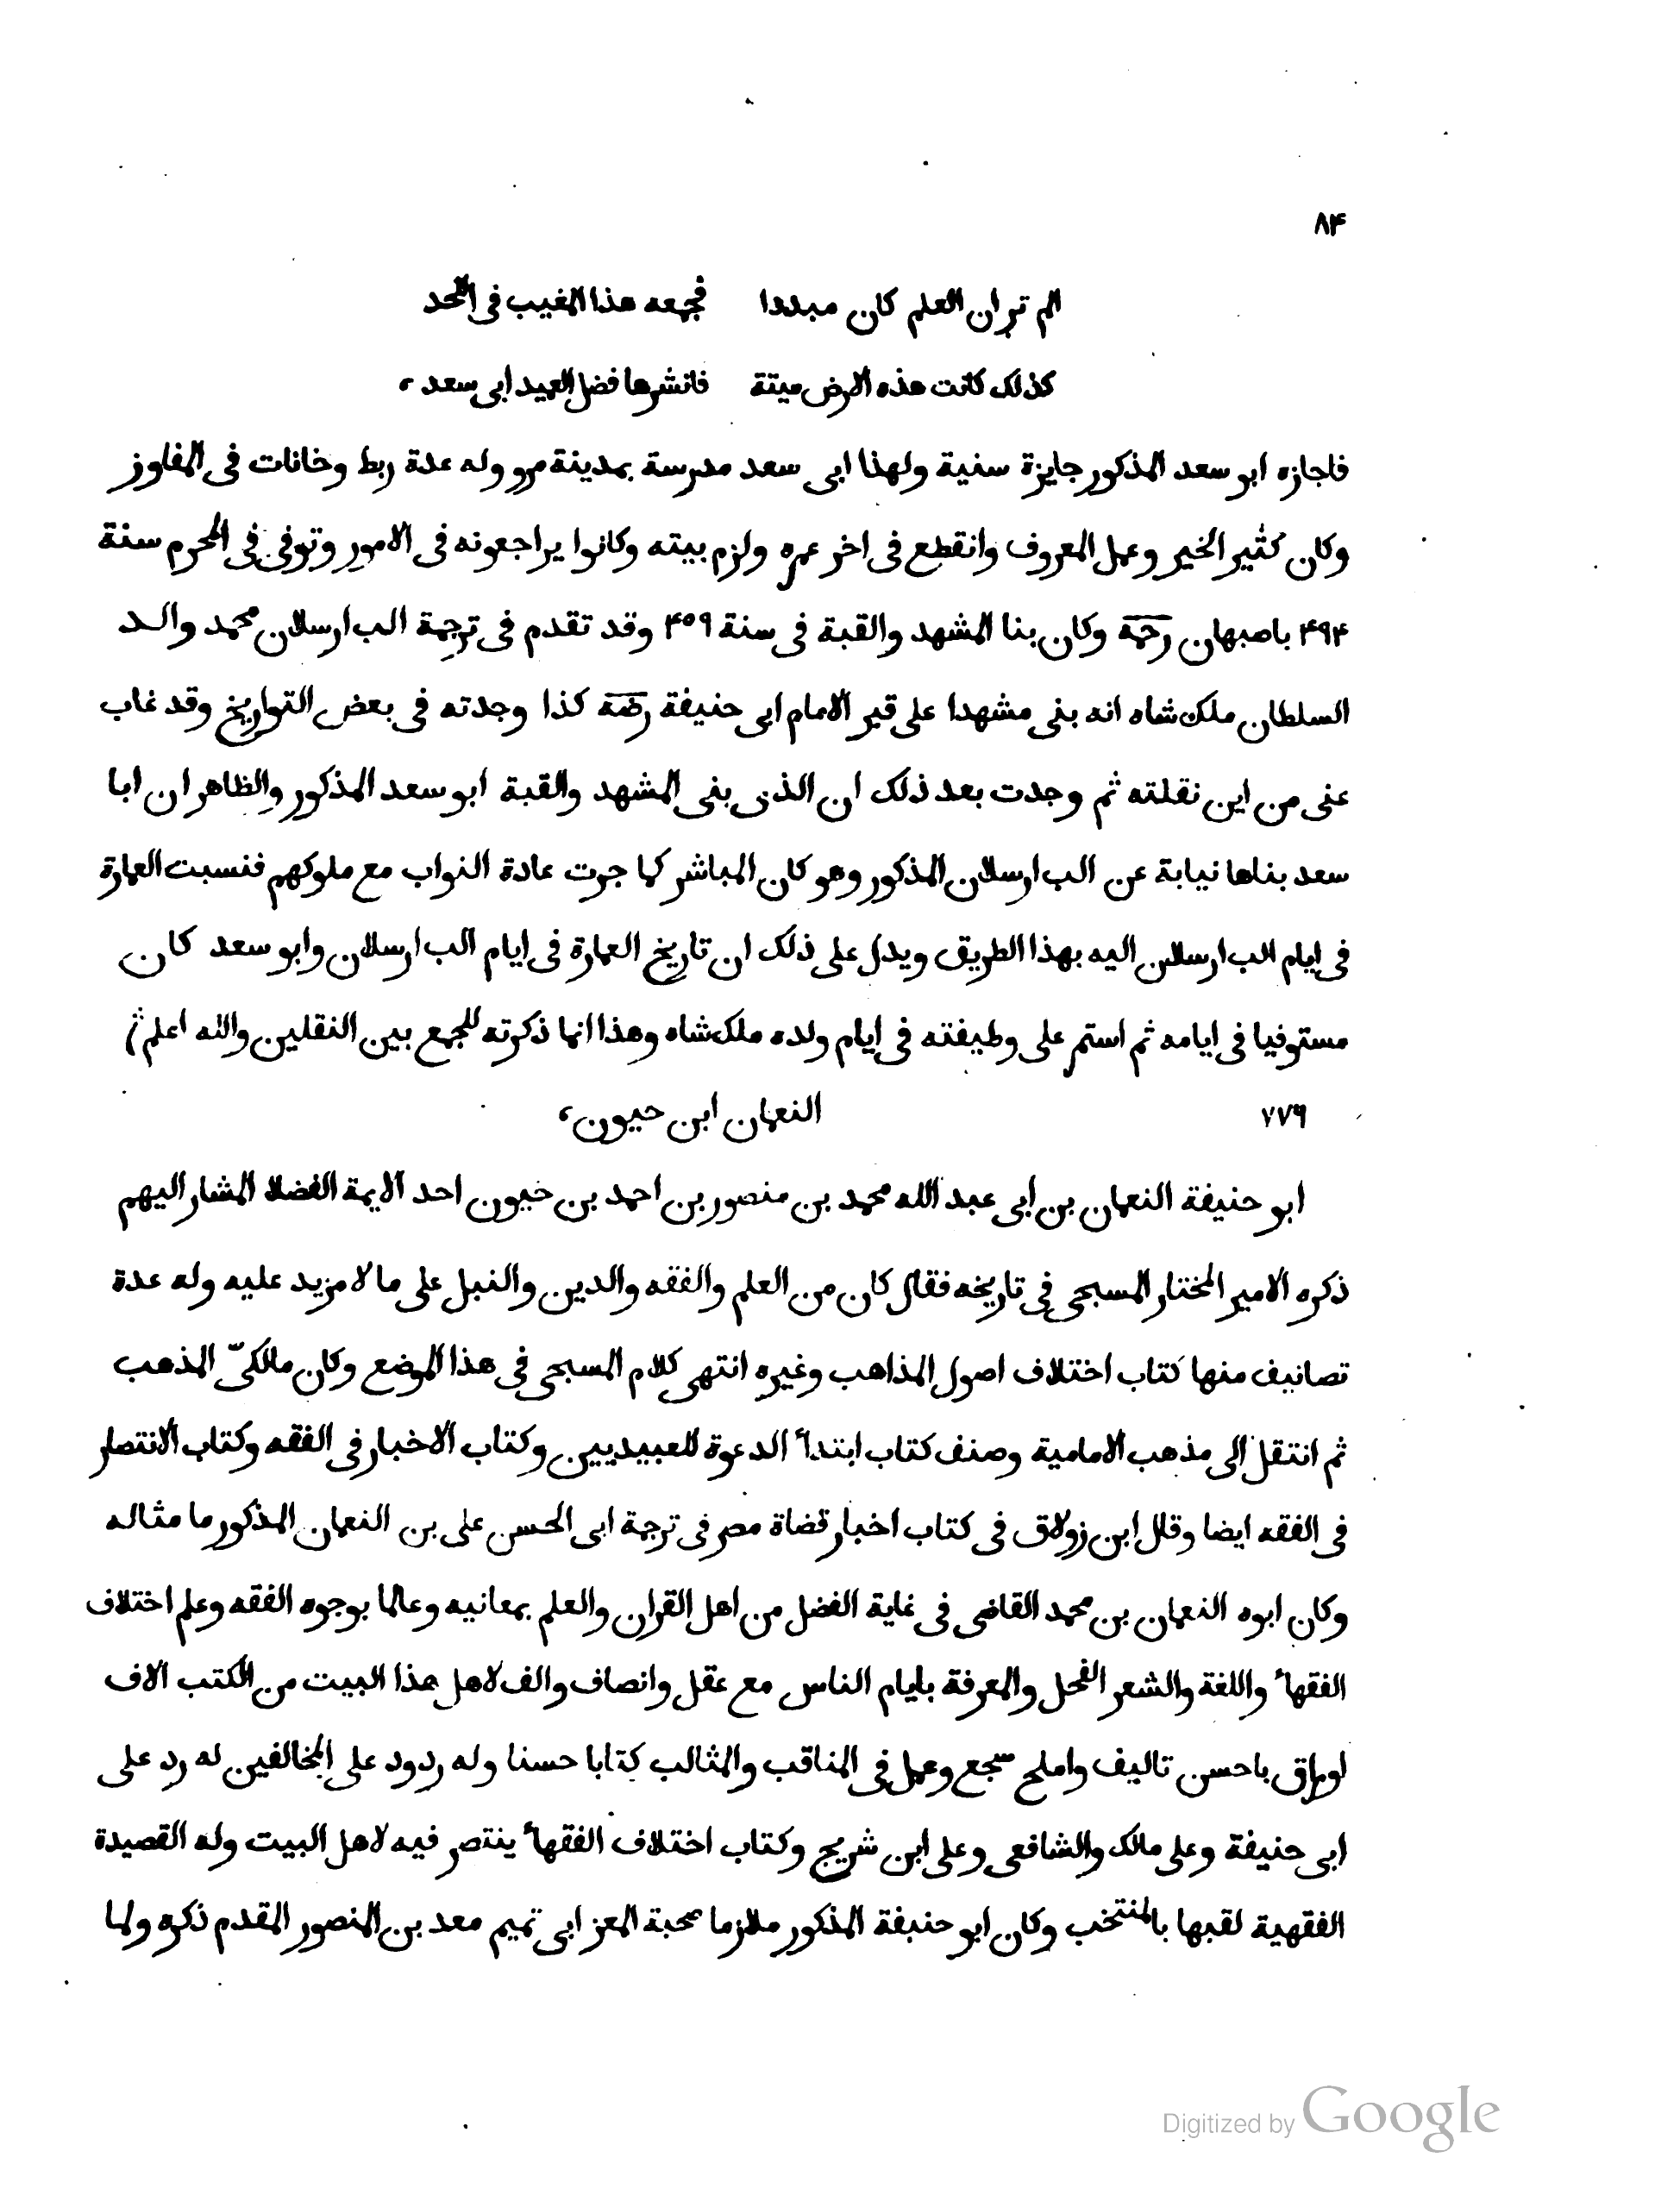 ٨۴
الم تر ان العلم كان مبددا فجمعه هذا المغيب فى اللحد
كذلك كانت هذه الارض ميتة فانشرها فضل العميد ابى سعد،
فاجازه ابو سعد المذكور جايزة سنية ولهذا ابى سعد مدرسة بمدينة مرو وله عدة ربط وخانات فى المفاوز
وكان كثير الخير وعمل المعروف وانقطع فى اخر عمره ولزم بيته وكانوا يراجعونه فى الامور وتوفى فى المحرم سنة
۴۹۴ باصبهان رحمه وكان بنا المشهد والقبة فى سنة ۴٥٩ وقد تقدم فى ترجمة الب ارسلان محمد والد
السلطان ملك شاه انه بنى مشهدا على قبر الامام ابى حنيفة رضه كذا وجدته فى بعض التواريخ وقد غاب
عنى من اين نقلته ثم وجدت بعد ذلك ان الذى بنى المشهد والقبة ابو سعد المذكور والظاهر ان ابا
سعد بناها نيابة عن الب ارسلان المذكور وهو كان المباشر كما جرت عادة النواب مع ملوكهم فنسبت العمارة
فى ايام الب ارسلان اليه بهذا الطريق ويدل على ذلك ان تاريخ العمارة فى ايام الب ارسلان وابو سعد كان
مستوفيا فى ايامه ثم استمر على وطيفته فى ايام ولده ملك شاه وهذا انما ذكرته للجمع بين النقلين والله اعلم
٧٧٦ النعمان ابن حيون،
ابو حنيفة النعمان بن ابى عبد الله محمد بن منصور بن احمد بن حيون احد الايمة الفضلا المشار اليهم
ذكره الامير المختار المسبحى فى تاريخه فقال كان من العلم والفقه والدين والنبل على ما لا مزيد عليه وله عدة
تصانيف منها كتاب اختلاف اصول المذاهب وغيره انتهى كلام المسبحى فى هذا الموضع وكان مالكىّ المذهب
ثم انتقل الى مذهب الامامية وصنف كتاب ابتدأ الدعوة للعبيديين وكتاب الاخبار فى الفقه وكتاب الانتصار
فى الفقه ايضا وقال ابن زولاق فى كتاب اخبار قضاة مصر فى ترجمة ابى الحسن على بن النعمان المذكور ما مثاله
وكان ابوه النعمان بن محمد القاضى فى غاية الفضل من اهل القران والعلم بمعانيه وعالما بوجوه الفقه وعلم اختلاف
الفقهأ واللغة والشعر الفحل والمعرفة بايام الناس مع عقل وانصاف والف لاهل هذا البيت من الكتب الاف
اوراق باحسن تاليف واملح سجع وعمل فى المناقب والمثالب كتابا حسنا وله ردود على المخالفين له رد على
ابى حنيفة وعلى مالك والشافعى وعلى ابن شريج وكتاب اختلاف الفقهأ ينتصر فيه لاهل البيت وله القصيدة
الفقهية لقبها بالمنتخب وكان ابو حنيفة المذكور ملازما صحبة المعز ابى تميم معد بن المنصور المقدم ذكره ولما
Digitized by Google